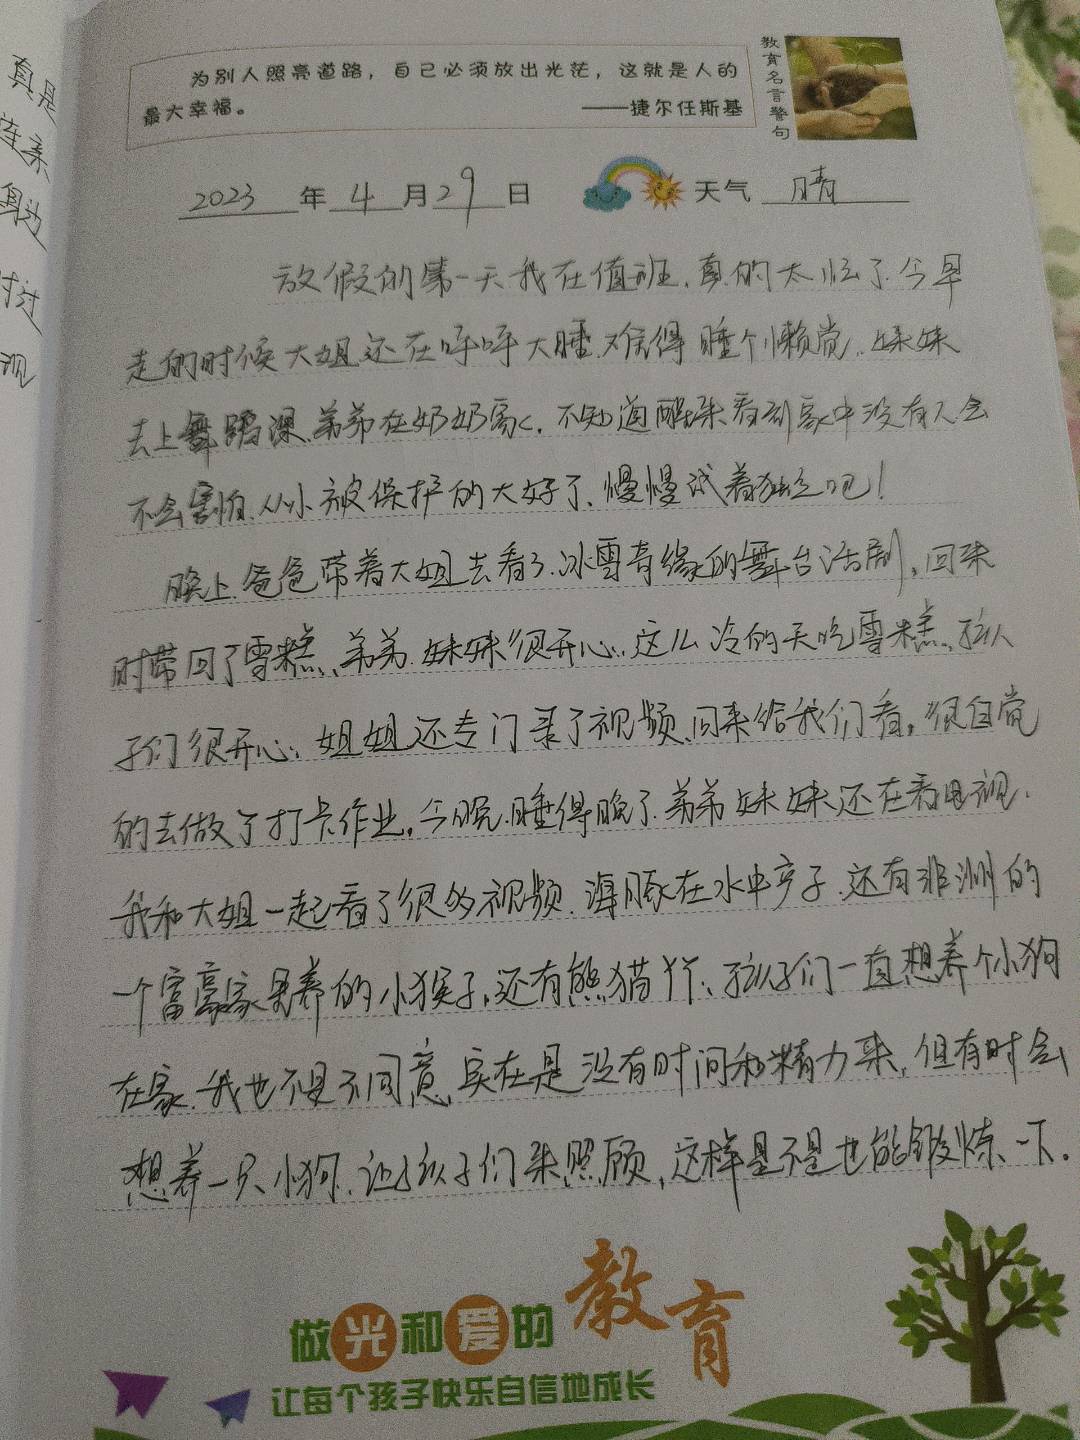 真是
连亲
身边
讨过
观
为别人照亮道路，自己必须放出光茫，这就是人的
最大幸福。 ——捷尔任斯基
教育名言警句
2023 年 4 月 29 日 天气 晴
放假的第一天我在值班，真的太忙了.今早
走的时候大姐还在呼呼大睡.难得睡个懒觉..妹妹
去上舞蹈课.弟弟在奶奶家，不知道醒来看到家中没有人会
不会害怕.从小被保护的太好了、慢慢试着独立吧！
晚上.爸爸带着大姐去看了.冰雪奇缘的舞台话剧，回来
时带回了雪糕、弟弟.妹妹很开心.这么冷的天吃雪糕.孩
子们很开心.姐姐还专门录了视频.回来给我们看，很自觉
的去做了打卡作业，今晚.睡得晚了.弟弟妹妹还在看电视.
我和大姐一起看了很多视频.海豚在水中产子.还有非洲的
一个富豪家里养的小猴子，还有熊猫丫丫、孩子们一直想养个小狗
在家.我也不是不同意，实在是没有时间和精力来，但有时会
想养一只小狗.让孩子们来照顾，这样是不是也能锻炼一下.
做光和爱的教育
让每个孩子快乐自信地成长